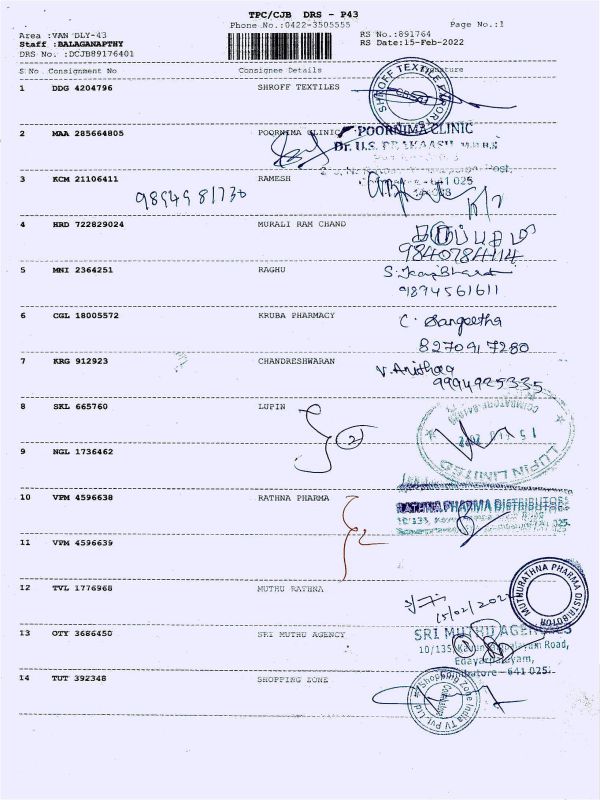 TPC/CJB DRS - P43
Phone No.:0422-3505555
Page No.:1
Area :VAN DLY-43
RS No.:891764
Staff :BALAGANAPTHY
RS Date:15-Feb-2022
DRS No. :DCJB89176401
S No Consignment No Consignee Details Signature
1 DDG 4204796 SHROFF TEXTILES
2 MAA 285664805 POORNIMA CLINIC
POORNIMA CLINIC
Dr. U.S. PRAKAASH M.B.B.S
3 KCM 21106411 RAMESH
641 025
9894981730
4 HRD 722829024 MURALI RAM CHAND
9840784114
5 MNI 2364251 RAGHU
9894561611
6 CGL 18005572 KRUBA PHARMACY
C. Sangeetha
8270917280
7 KRG 912923 CHANDRESHWARAN
V. Anitha
9994925335
8 SKL 665760 LUPIN
2
LUPIN LIMITED
9 NGL 1736462
10 VPM 4596638 RATHNA PHARMA
RATHNA PHARMA DISTRIBUTORS
2
11 VPM 4596639
12 TVL 1776968 MUTHU RATHNA
15/02/202
MUTHURATHNA PHARMA DISTRIBUTOR
13 OTY 3686450 SRI MUTHU AGENCY
SRI MUTHU AGENCIES
Road,
Edayarpalayam,
Coimbatore - 641 025.
14 TUT 392348 SHOPPING ZONE
Shopping Zone India TV Pvt. Ltd.